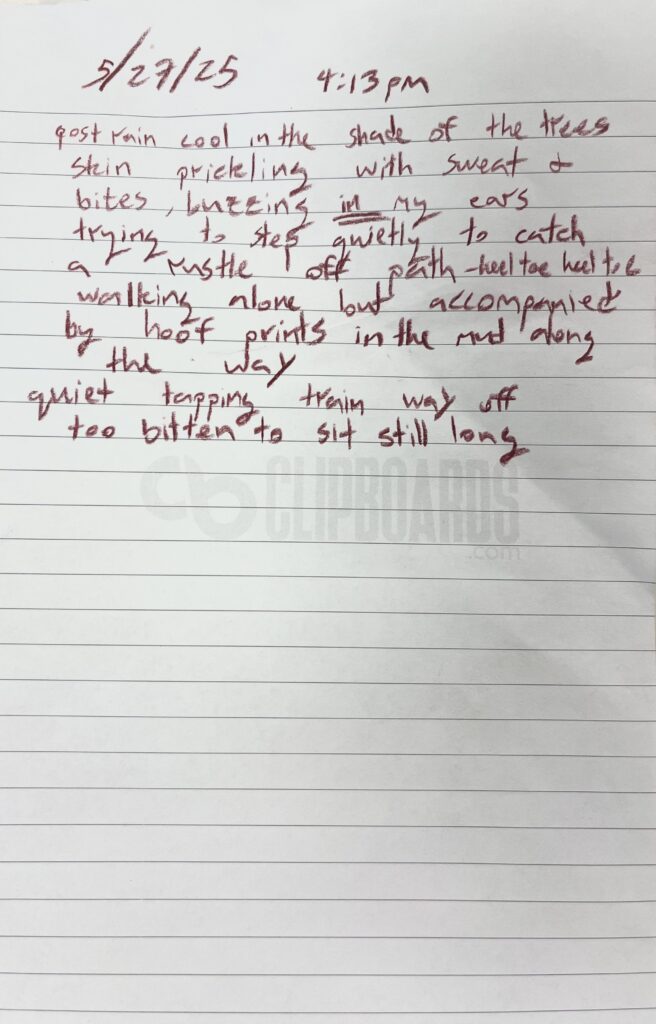 5/27/25 4:13pm
post rain cool in the shade of the trees
skin prickling with sweat &
bites, buzzing in my ears
trying to step quietly to catch
a rustle off path - heel toe heel toe
walking alone but accompanied
by hoof prints in the mud along
the way
quiet tapping train way off
too bitten to sit still long
cb CLIPBOARDS
.com